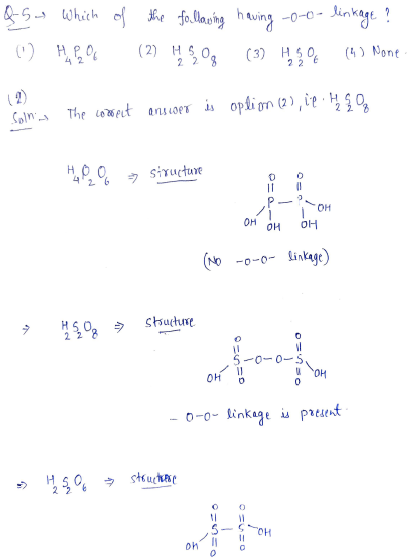 Q-5→ Which of the following having -O-O- linkage?
(1) H4P2O6 (2) H2S2O8 (3) H2S2O6 (4) None.
(2)
Soln:→ The correct answer is option (2), i.e. H2S2O8
H4P2O6 ⇒ structure
O O
P — P
OH OH OH OH
(No -O-O- linkage)
⇒ H2S2O8 ⇒ structure
O O
S — O — O — S
OH O O OH
- O-O- linkage is present.
⇒ H2S2O6 ⇒ structure
O O
S — S — OH
OH O O